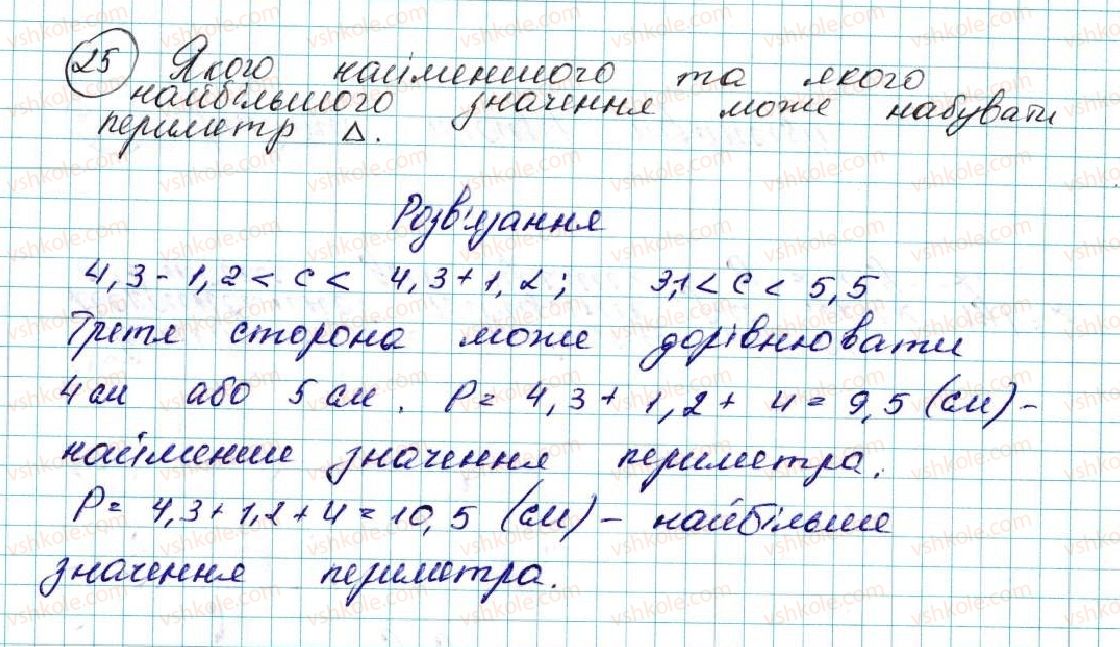 25 Якого найменшого та якого
найбільшого значення може набувати
периметр Δ.
Розв'язання
4,3 - 1,2 < c < 4,3 + 1,2; 3,1 < c < 5,5
Третя сторона може дорівнювати
4 см або 5 см. P = 4,3 + 1,2 + 4 = 9,5 (см) -
найменше значення периметра.
P = 4,3 + 1,2 + 4 = 10,5 (см) - найбільше
значення периметра.